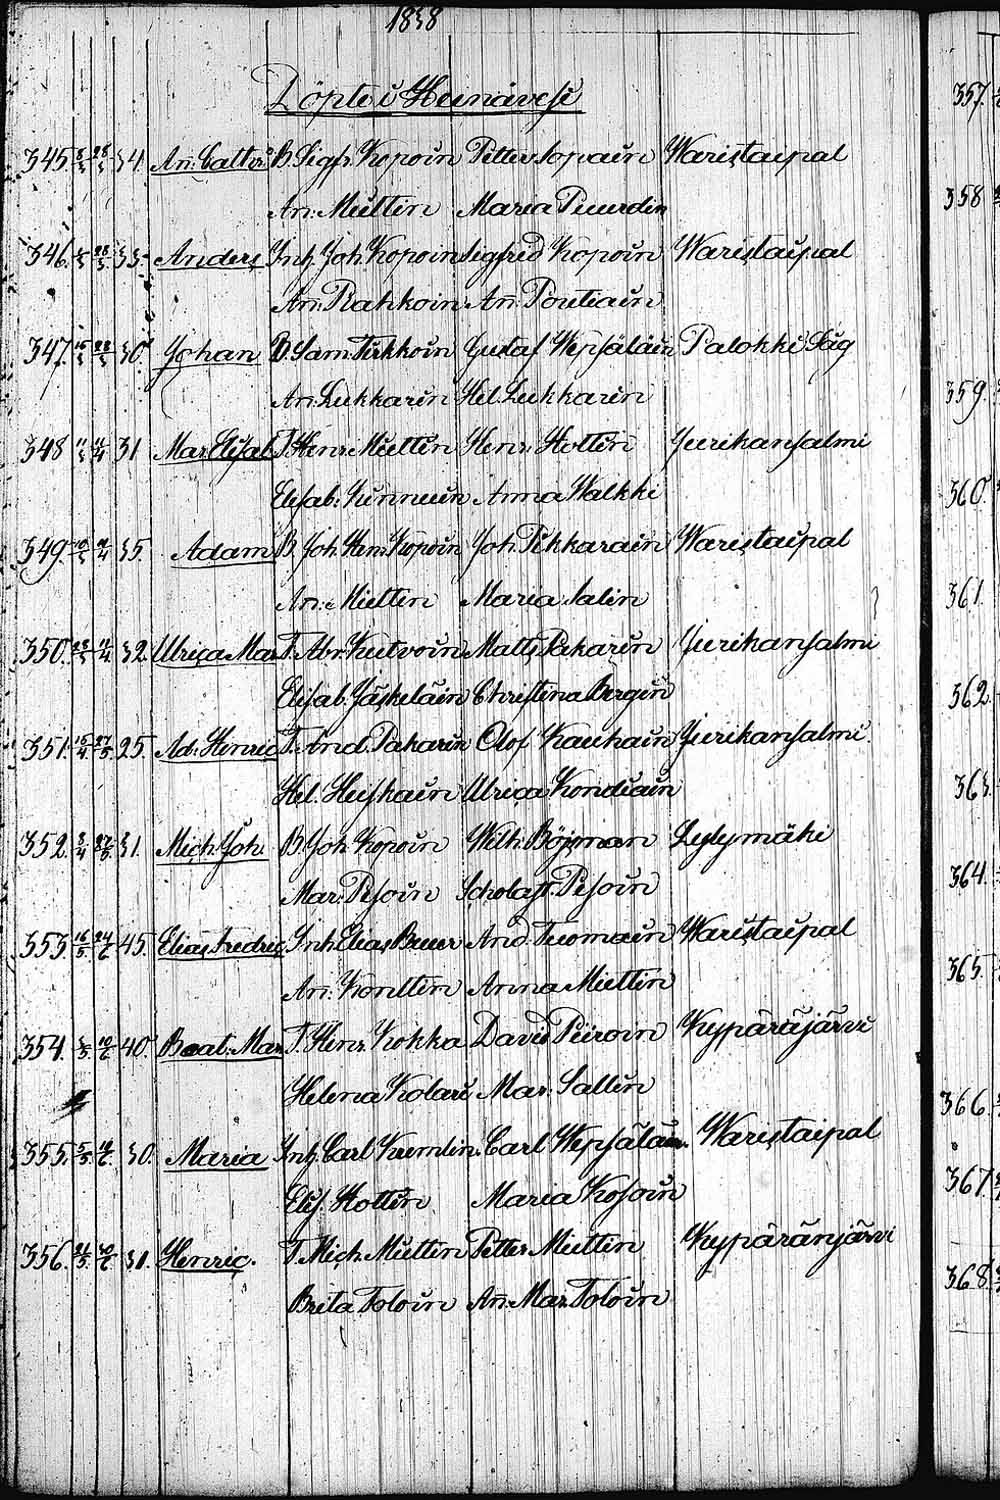 1838
Döpte i Heinävesi
345. 8/3 28/3 34. An: Cathr: B. Sigfr. Kopoin Petter Sopain Waristaipal
An: Miettin Maria Puurdin
346. 28/3 33. Anders Inh. Joh. Kopoin Sigfrid Kopoin Waristaipal
An: Rahkoin An: Pöntiäin
347. 15/3 28/3 30. Johan B. Sam: Tirkkoin Gustaf Wepsäläin Palokki Såg
An: Lukkarin Hel. Lukkarin
348 11/3 11/4 31 Mar. Elisab. T. Henr. Miettin Henr. Hottin Juurikansalmi
Elisab. Kinnuin Anna Walkki
349. 35. Adam B. Joh. Henr. Kopoin Joh. Pikkarain Waristaipal
An: Miettin Maria Salin
350. 32. Ulrica Mar. T. Abr. Kutvoin Matts Pakarin Juurikansalmi
Elisab. Jäskeläin Christina Bergin
351. 15/4 27/5 25. Ad: Henric T. And. Pakarin Olof Kauhain Juurikansalmi
Hel. Huskain Ulrica Kondiain
352. 8/4 27/5 31. Mich. Joh. B. Joh. Kopoin Wilh. Böjman Lylymäki
Mar. Pesoin Scholast. Pesoin
353. 16/5 45. Elias Fredric Inh. Elias Bruer And. Tuomain Waristaipal
An: Konttin Anna Miettin
354. 40. Beat. Mar. T. Henr. Kokka David Piiroin Kypäräjärvi
Helena Kolari Mar. Sallin
355. 5/5 30. Maria Inh. Carl Kremlin Carl Wepsäläin Waristaipal
Elis. Hottin Maria Kosoin
356. 31. Henric. T. Mich. Miettin Petter Miettin Kypäränjärvi
Brita Toloin An: Mar. Toloin
357.
358
359.
360.
361.
362.
363.
364.
365.
366
367
368.